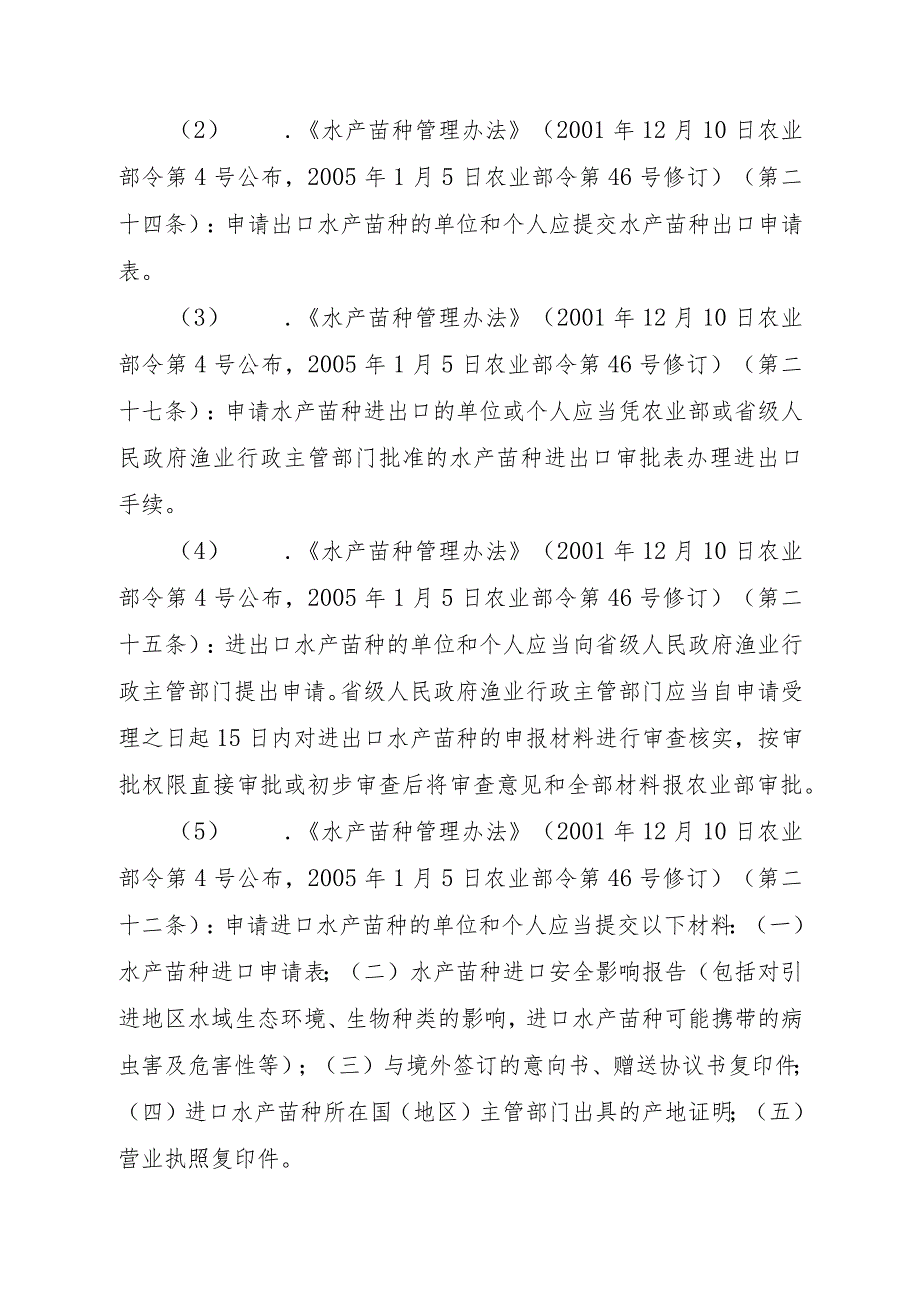 （2） .《水产苗种管理办法》（2001年12月10日农业
部令第4号公布，2005年1月5日农业部令第46号修订）（第二
十四条）：申请出口水产苗种的单位和个人应提交水产苗种出口申请
表。
（3） .《水产苗种管理办法》（2001年12月10日农业
部令第4号公布，2005年1月5日农业部令第46号修订）（第二
十七条）：申请水产苗种进出口的单位或个人应当凭农业部或省级人
民政府渔业行政主管部门批准的水产苗种进出口审批表办理进出口
手续。
（4） .《水产苗种管理办法》（2001年12月10日农业
部令第4号公布，2005年1月5日农业部令第46号修订）（第二
十五条）：进出口水产苗种的单位和个人应当向省级人民政府渔业行
政主管部门提出申请。省级人民政府渔业行政主管部门应当自申请受
理之日起15日内对进出口水产苗种的申报材料进行审查核实，按审
批权限直接审批或初步审查后将审查意见和全部材料报农业部审批。
（5） .《水产苗种管理办法》（2001年12月10日农业
部令第4号公布，2005年1月5日农业部令第46号修订）（第二
十二条）：申请进口水产苗种的单位和个人应当提交以下材料：（一）
水产苗种进口申请表；（二）水产苗种进口安全影响报告（包括对引
进地区水域生态环境、生物种类的影响，进口水产苗种可能携带的病
虫害及危害性等）；（三）与境外签订的意向书、赠送协议书复印件；
（四）进口水产苗种所在国（地区）主管部门出具的产地证明；（五）
营业执照复印件。